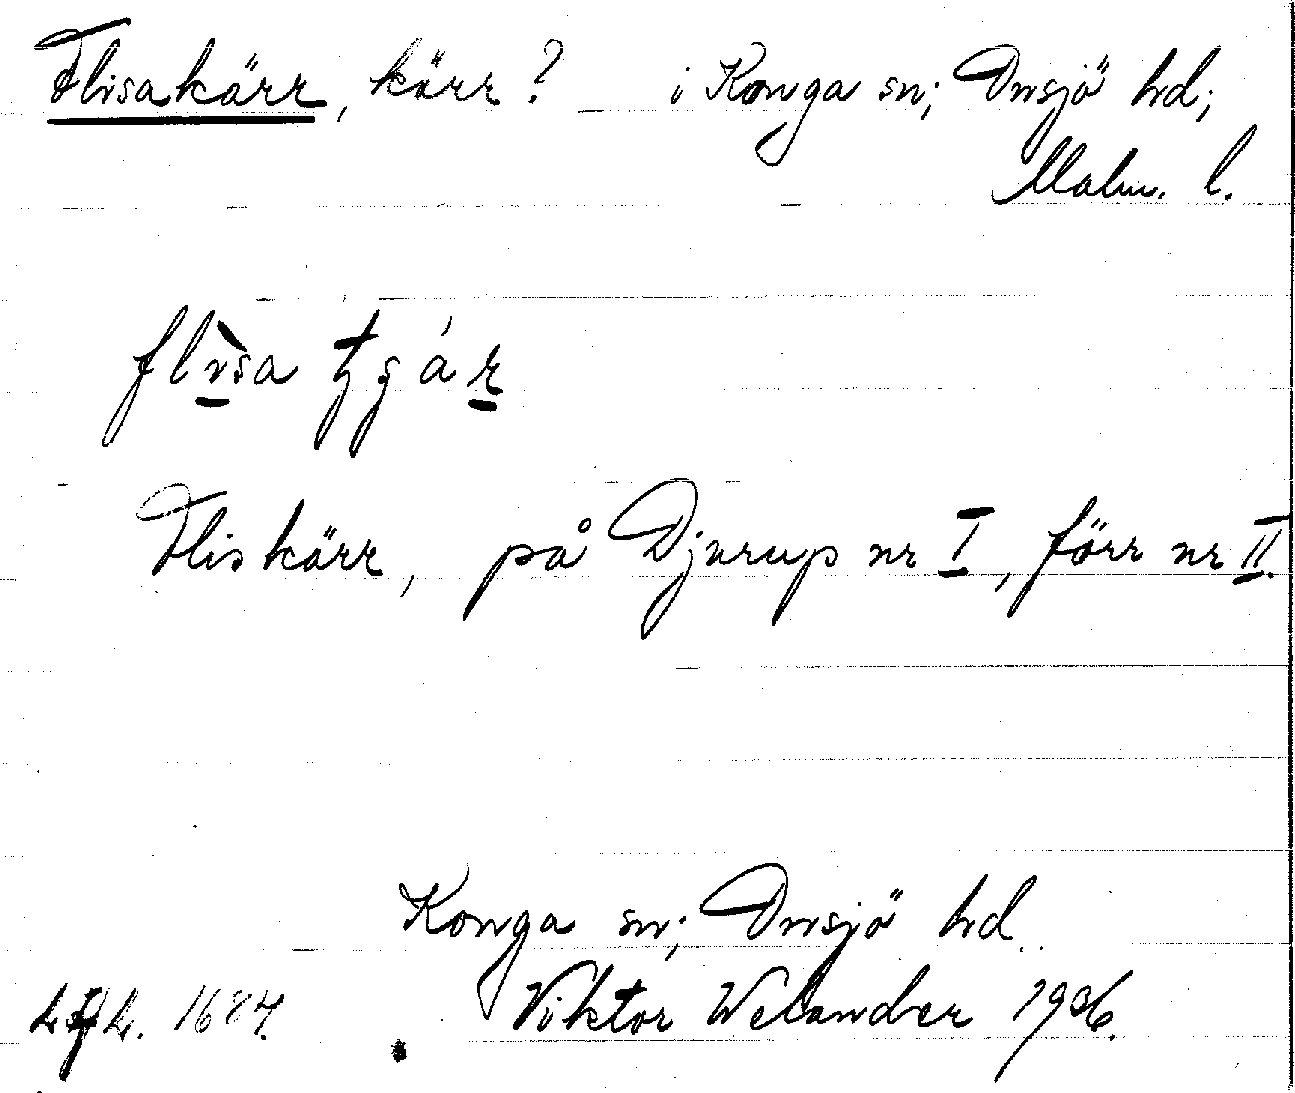 Flisakärr, kärr? i Konga sn; Onsjö hd;
Malm. l.
Fliskärr, på Djurup nr I, förr nr II.
Konga sn; Onsjö hd.
Viktor Welander 1906.
1684.